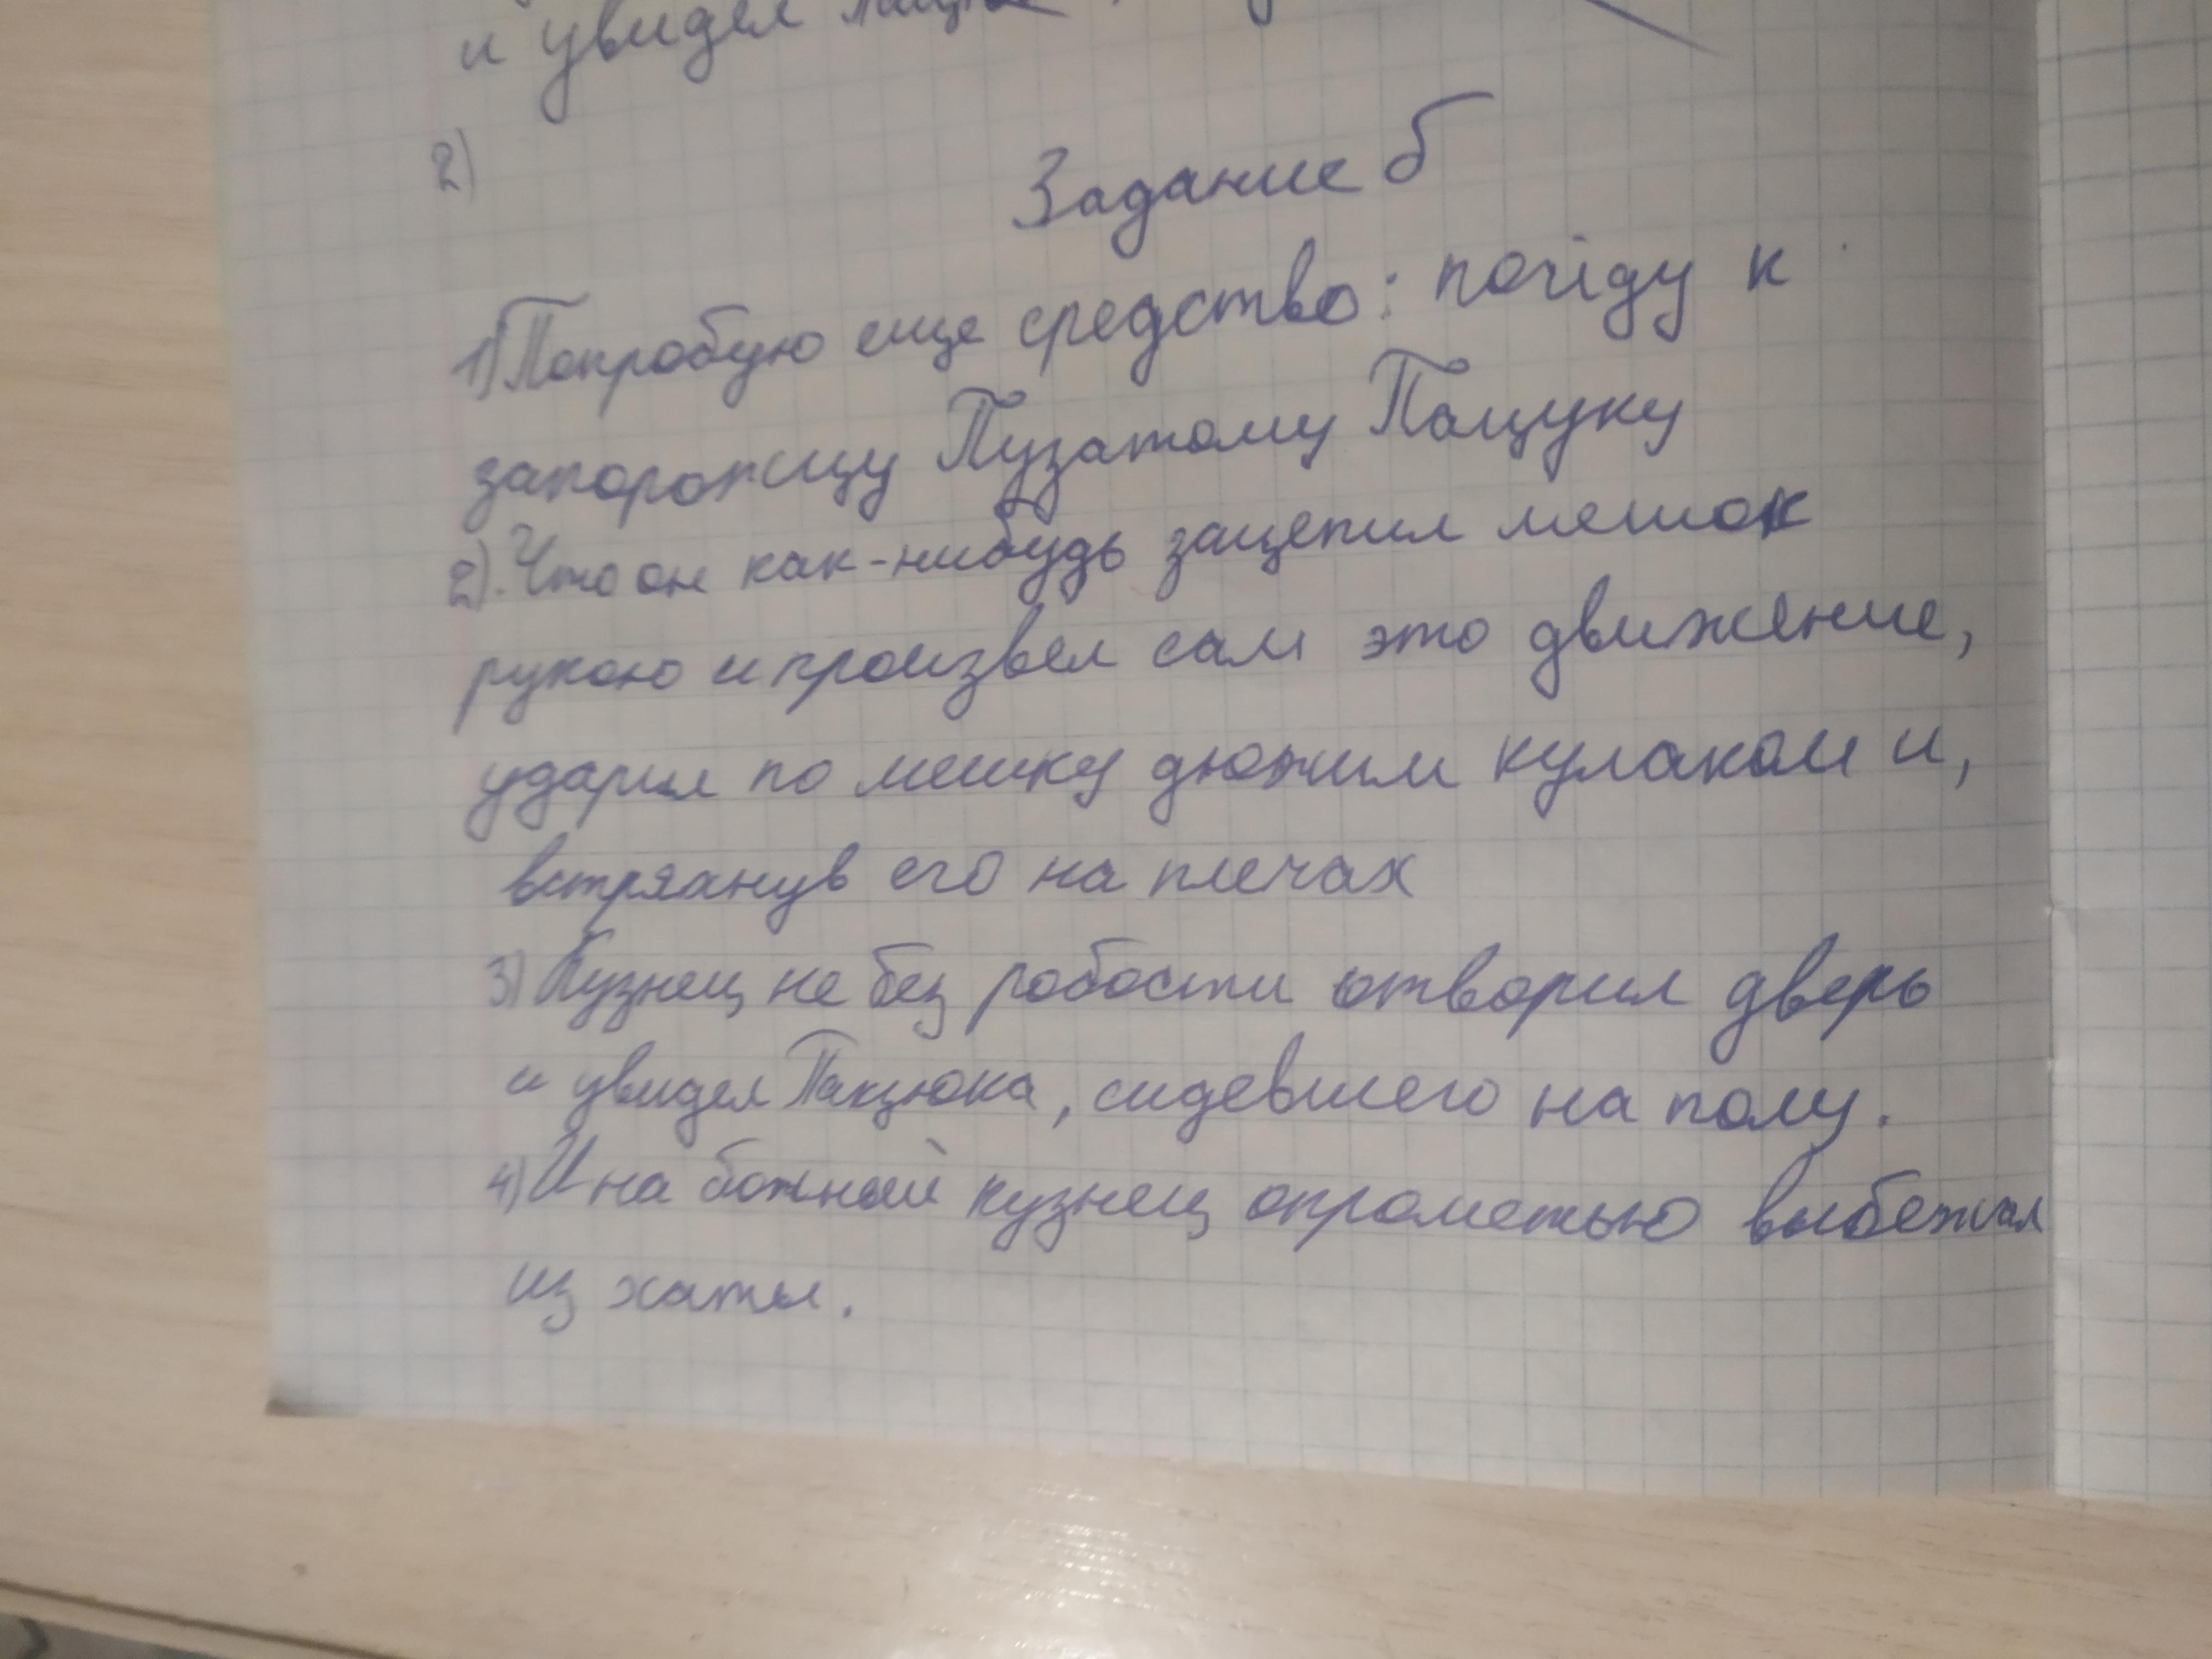 и увидел
2)
Задание б
1) Попробую еще средство: почіду к
запорожцу Пузатому Пацуку
2). Что он как-нибудь зацепил мешок
рукою и произвел сам это движение,
ударил по мешку дюжим кулаком и,
встряхнув его на плечах
3) Кузнец не без робости отворил дверь
и увидел Пацюка, сидевшего на полу.
4) И на божный кузнец опрометью выбежал
из хаты.